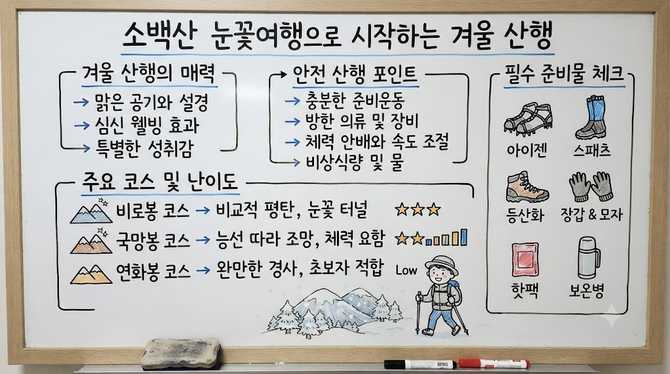 소백산 눈꽃여행으로 시작하는 겨울 산행
겨울 산행의 매력
→ 맑은 공기와 설경
→ 심신 웰빙 효과
→ 특별한 성취감
안전 산행 포인트
→ 충분한 준비운동
→ 방한 의류 및 장비
→ 체력 안배와 속도 조절
→ 비상식량 및 물
주요 코스 및 난이도
비로봉 코스 → 비교적 평탄, 눈꽃 터널
국망봉 코스 → 능선 따라 조망, 체력 요함
연화봉 코스 → 완만한 경사, 초보자 적합 Low
필수 준비물 체크
아이젠
스패츠
등산화
장갑 & 모자
핫팩
보온병